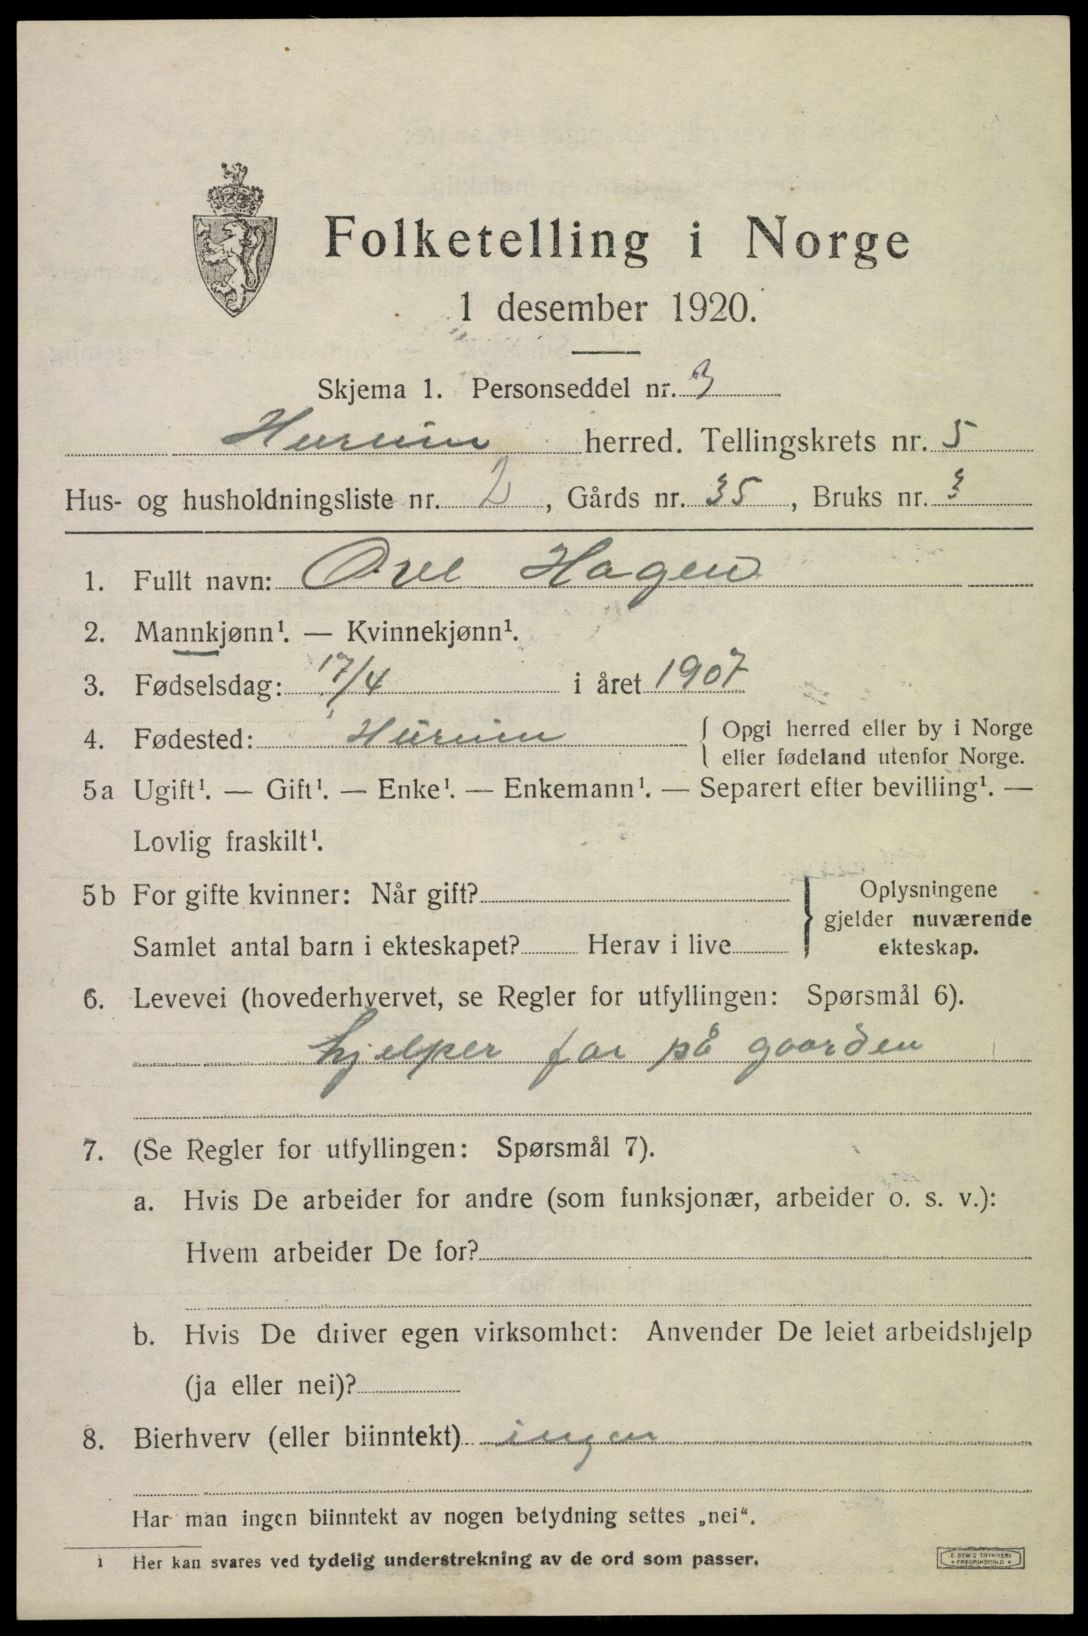 Folketelling i Norge
1 desember 1920.
Skjema 1. Personseddel nr. 3
Hurum herred. Tellingskrets nr. 5
Hus- og husholdningsliste nr. 2, Gårds nr. 35, Bruks nr. 3
1. Fullt navn: Ove Hagen
2. Mannkjønn¹. — Kvinnekjønn¹.
3. Fødselsdag: 17/4 i året 1907
4. Fødested: Hurum { Opgi herred eller by i Norge
eller fødeland utenfor Norge.
5a Ugift¹. — Gift¹. — Enke¹. — Enkemann¹. — Separert efter bevilling¹. —
Lovlig fraskilt¹.
5b For gifte kvinner: Når gift?
Samlet antal barn i ekteskapet? Herav i live
} Oplysningene
gjelder nuværende
ekteskap.
6. Levevei (hovederhvervet, se Regler for utfyllingen: Spørsmål 6).
hjelper far på gaarden
7. (Se Regler for utfyllingen: Spørsmål 7).
a. Hvis De arbeider for andre (som funksjonær, arbeider o. s. v.):
Hvem arbeider De for?
b. Hvis De driver egen virksomhet: Anvender De leiet arbeidshjelp
(ja eller nei)?
8. Bierhverv (eller biinntekt) ingen
Har man ingen biinntekt av nogen betydning settes „nei“.
1 Her kan svares ved tydelig understrekning av de ord som passer.